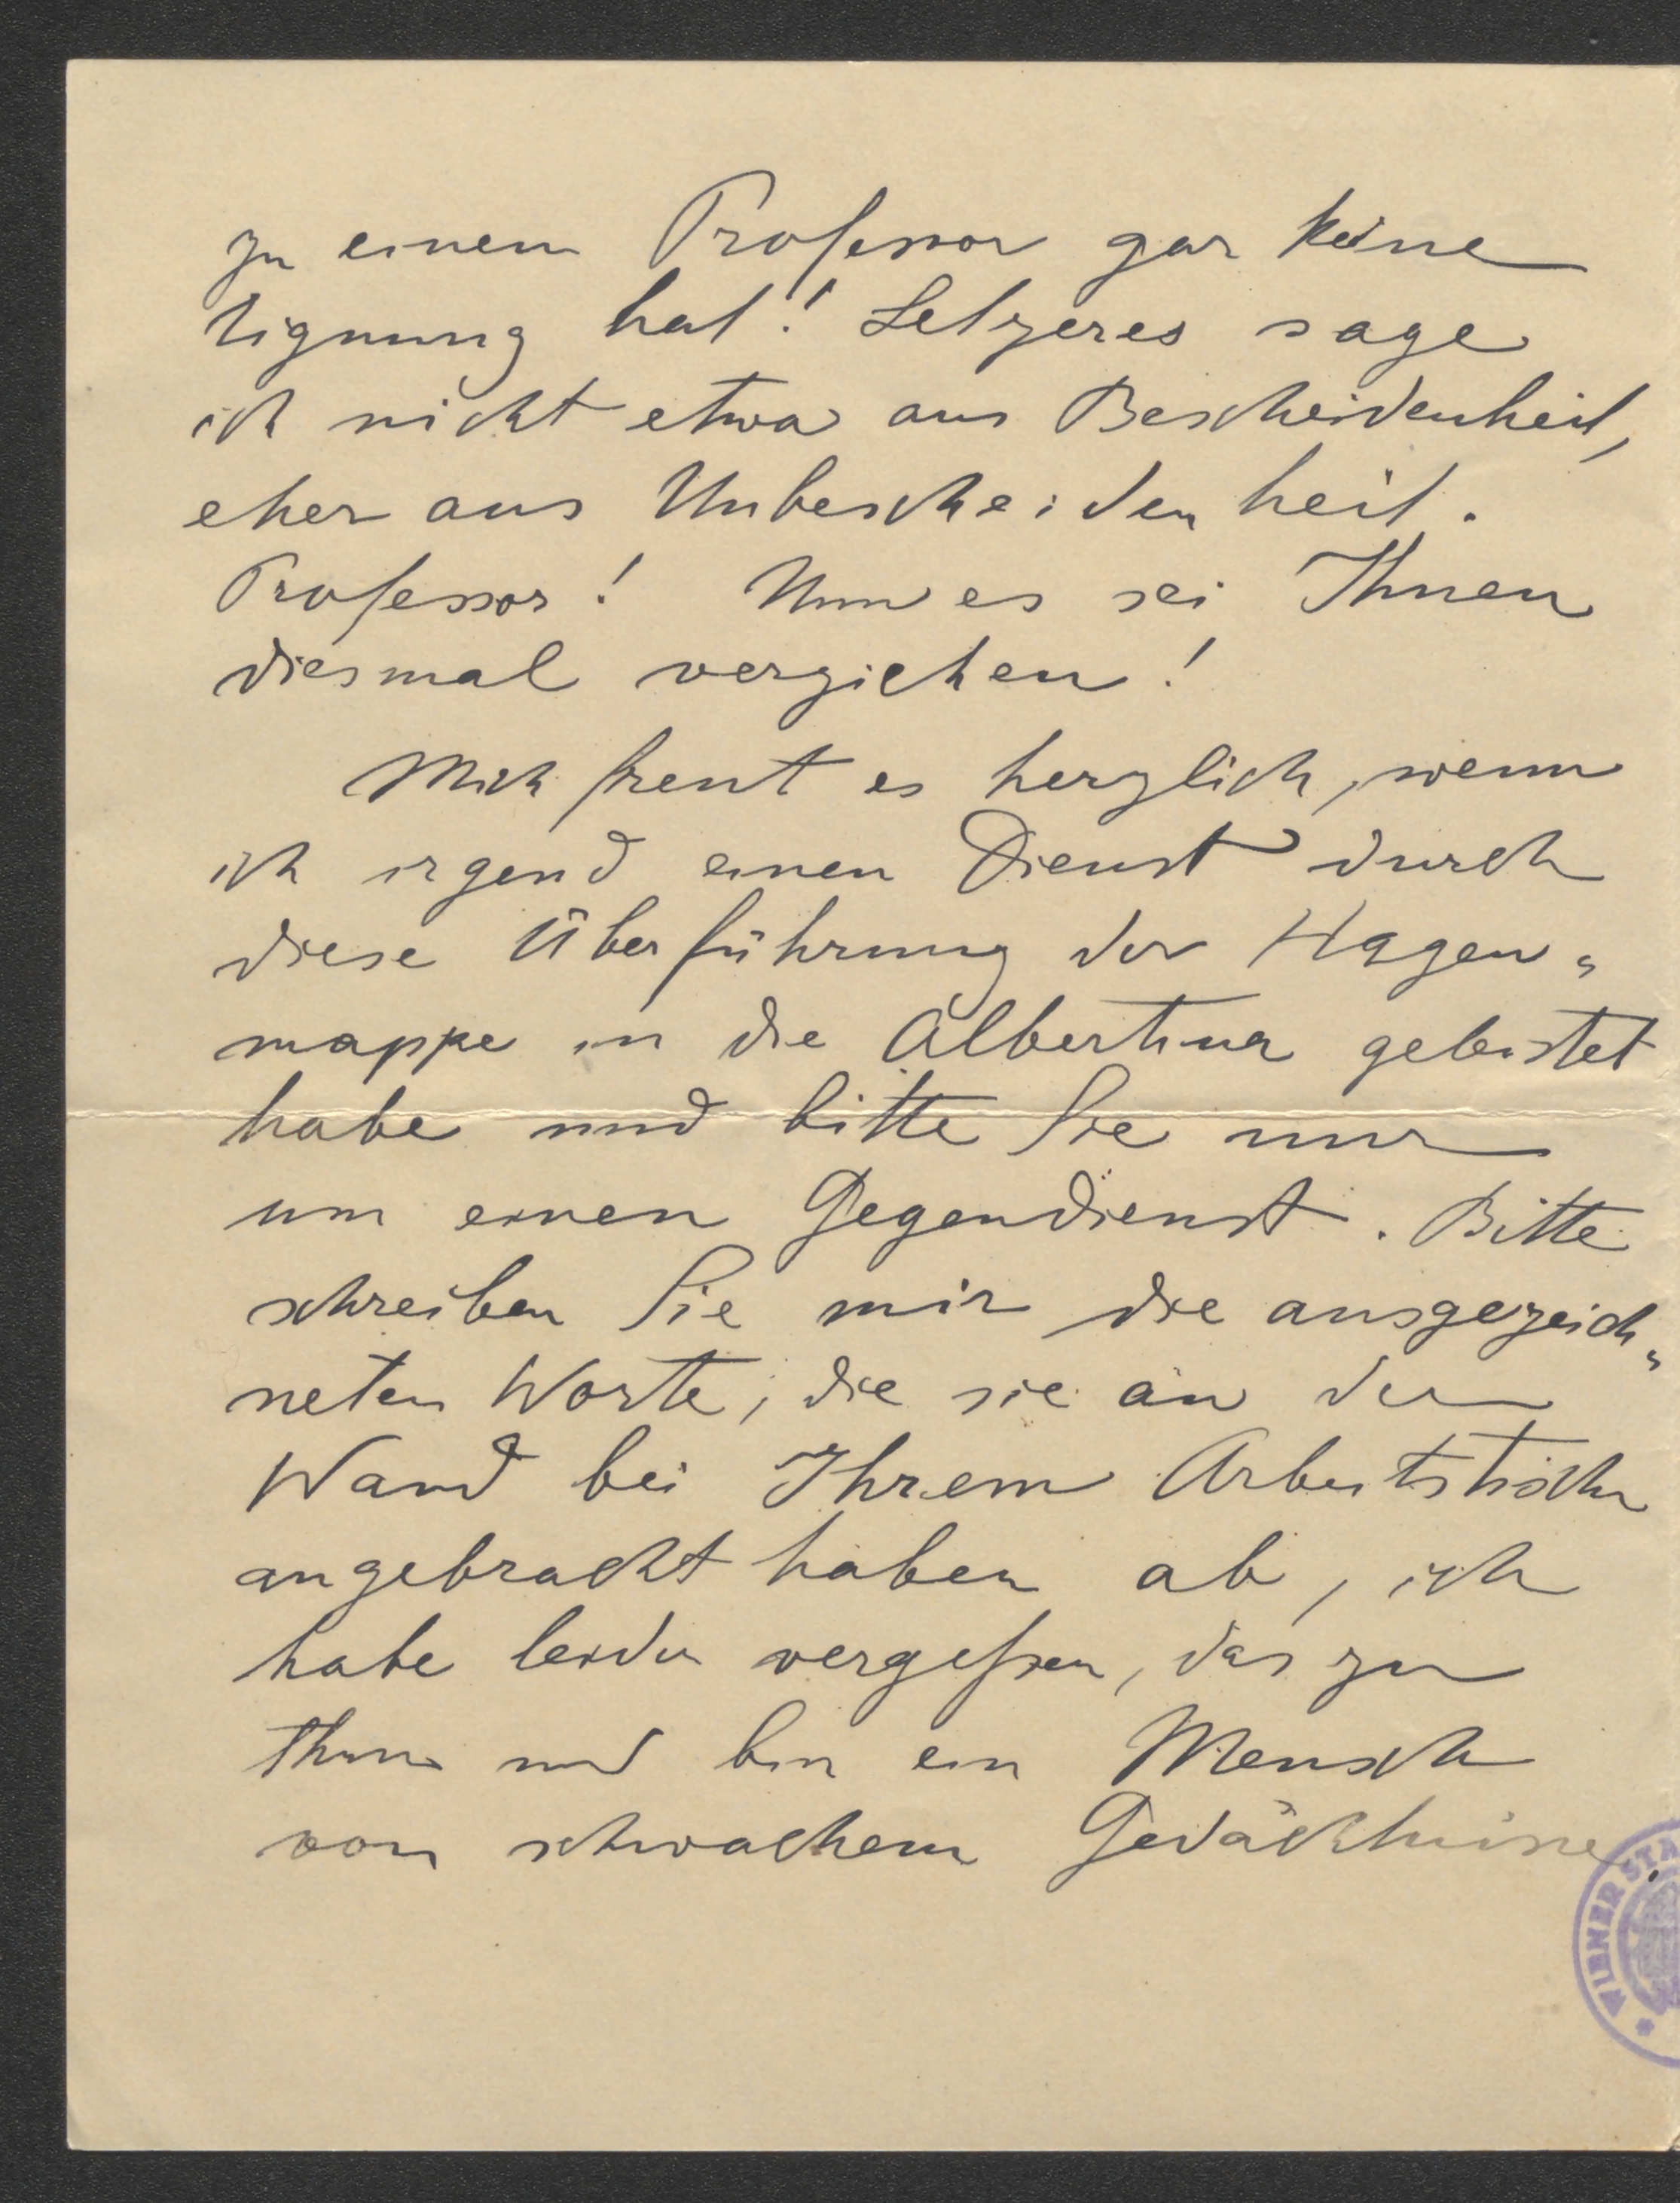 zu einem Professor gar keine
Eignung hat! Letzeres sage
ich nicht etwa aus Bescheidenheit,
eher aus Unbescheidenheit.
Professor! Nun es sei Ihnen
diesmal verziehen!
Mich freut es herzlich, wenn
ich irgend einen Dienst durch
diese Überführung der Hagen„
mappe in die Albertina geleistet
habe und bitte Sie nur
um einen Gegendienst. Bitte
schreiben Sie mir die ausgezeich„
neten Worte, die sie an der
Wand bei Ihrem Arbeitstische
angebracht haben ab, ich
habe leider vergeßen, das zu
thun und bin ein Mensch
von schwachem Gedächtnisse.
WIENER STA